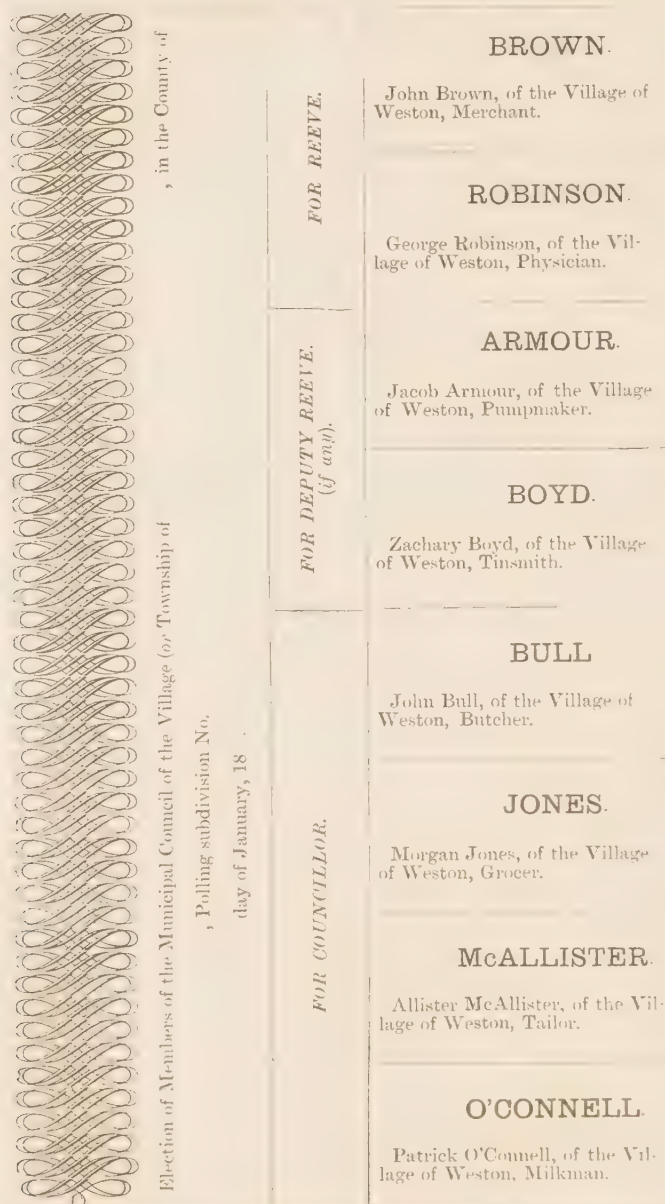 Election of Members of the Municipal Council of the Village (or Township of , in the County of
, Polling subdivision No.
day of January, 18 .
FOR REEVE.
BROWN.
John Brown, of the Village of
Weston, Merchant.
ROBINSON.
George Robinson, of the Vil-
lage of Weston, Physician.
FOR DEPUTY REEVE.
(if any).
ARMOUR.
Jacob Armour, of the Village
of Weston, Pumpmaker.
BOYD.
Zachary Boyd, of the Village
of Weston, Tinsmith.
FOR COUNCILLOR.
BULL
John Bull, of the Village of
Weston, Butcher.
JONES.
Morgan Jones, of the Village
of Weston, Grocer.
McALLISTER.
Allister McAllister, of the Vil-
lage of Weston, Tailor.
O'CONNELL.
Patrick O'Connell, of the Vil-
lage of Weston, Milkman.